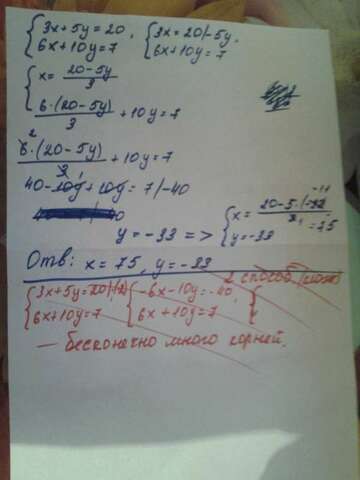 {3x+5y=20, {3x=20-5y,
{6x+10y=7 {6x+10y=7
{x= (20-5y)/3
{6·(20-5y)/3 +10y=7
6·(20-5y)/3 +10y=7
40-10y+10y=7/-40
y=-33 => {x= 20-5·
{y=-33
=75
Отв: x=75, y=-33
2 способ
{3x+5y=20 {-6x-10y=-40,
{6x+10y=7 {6x+10y=7
— бесконечно много корней.